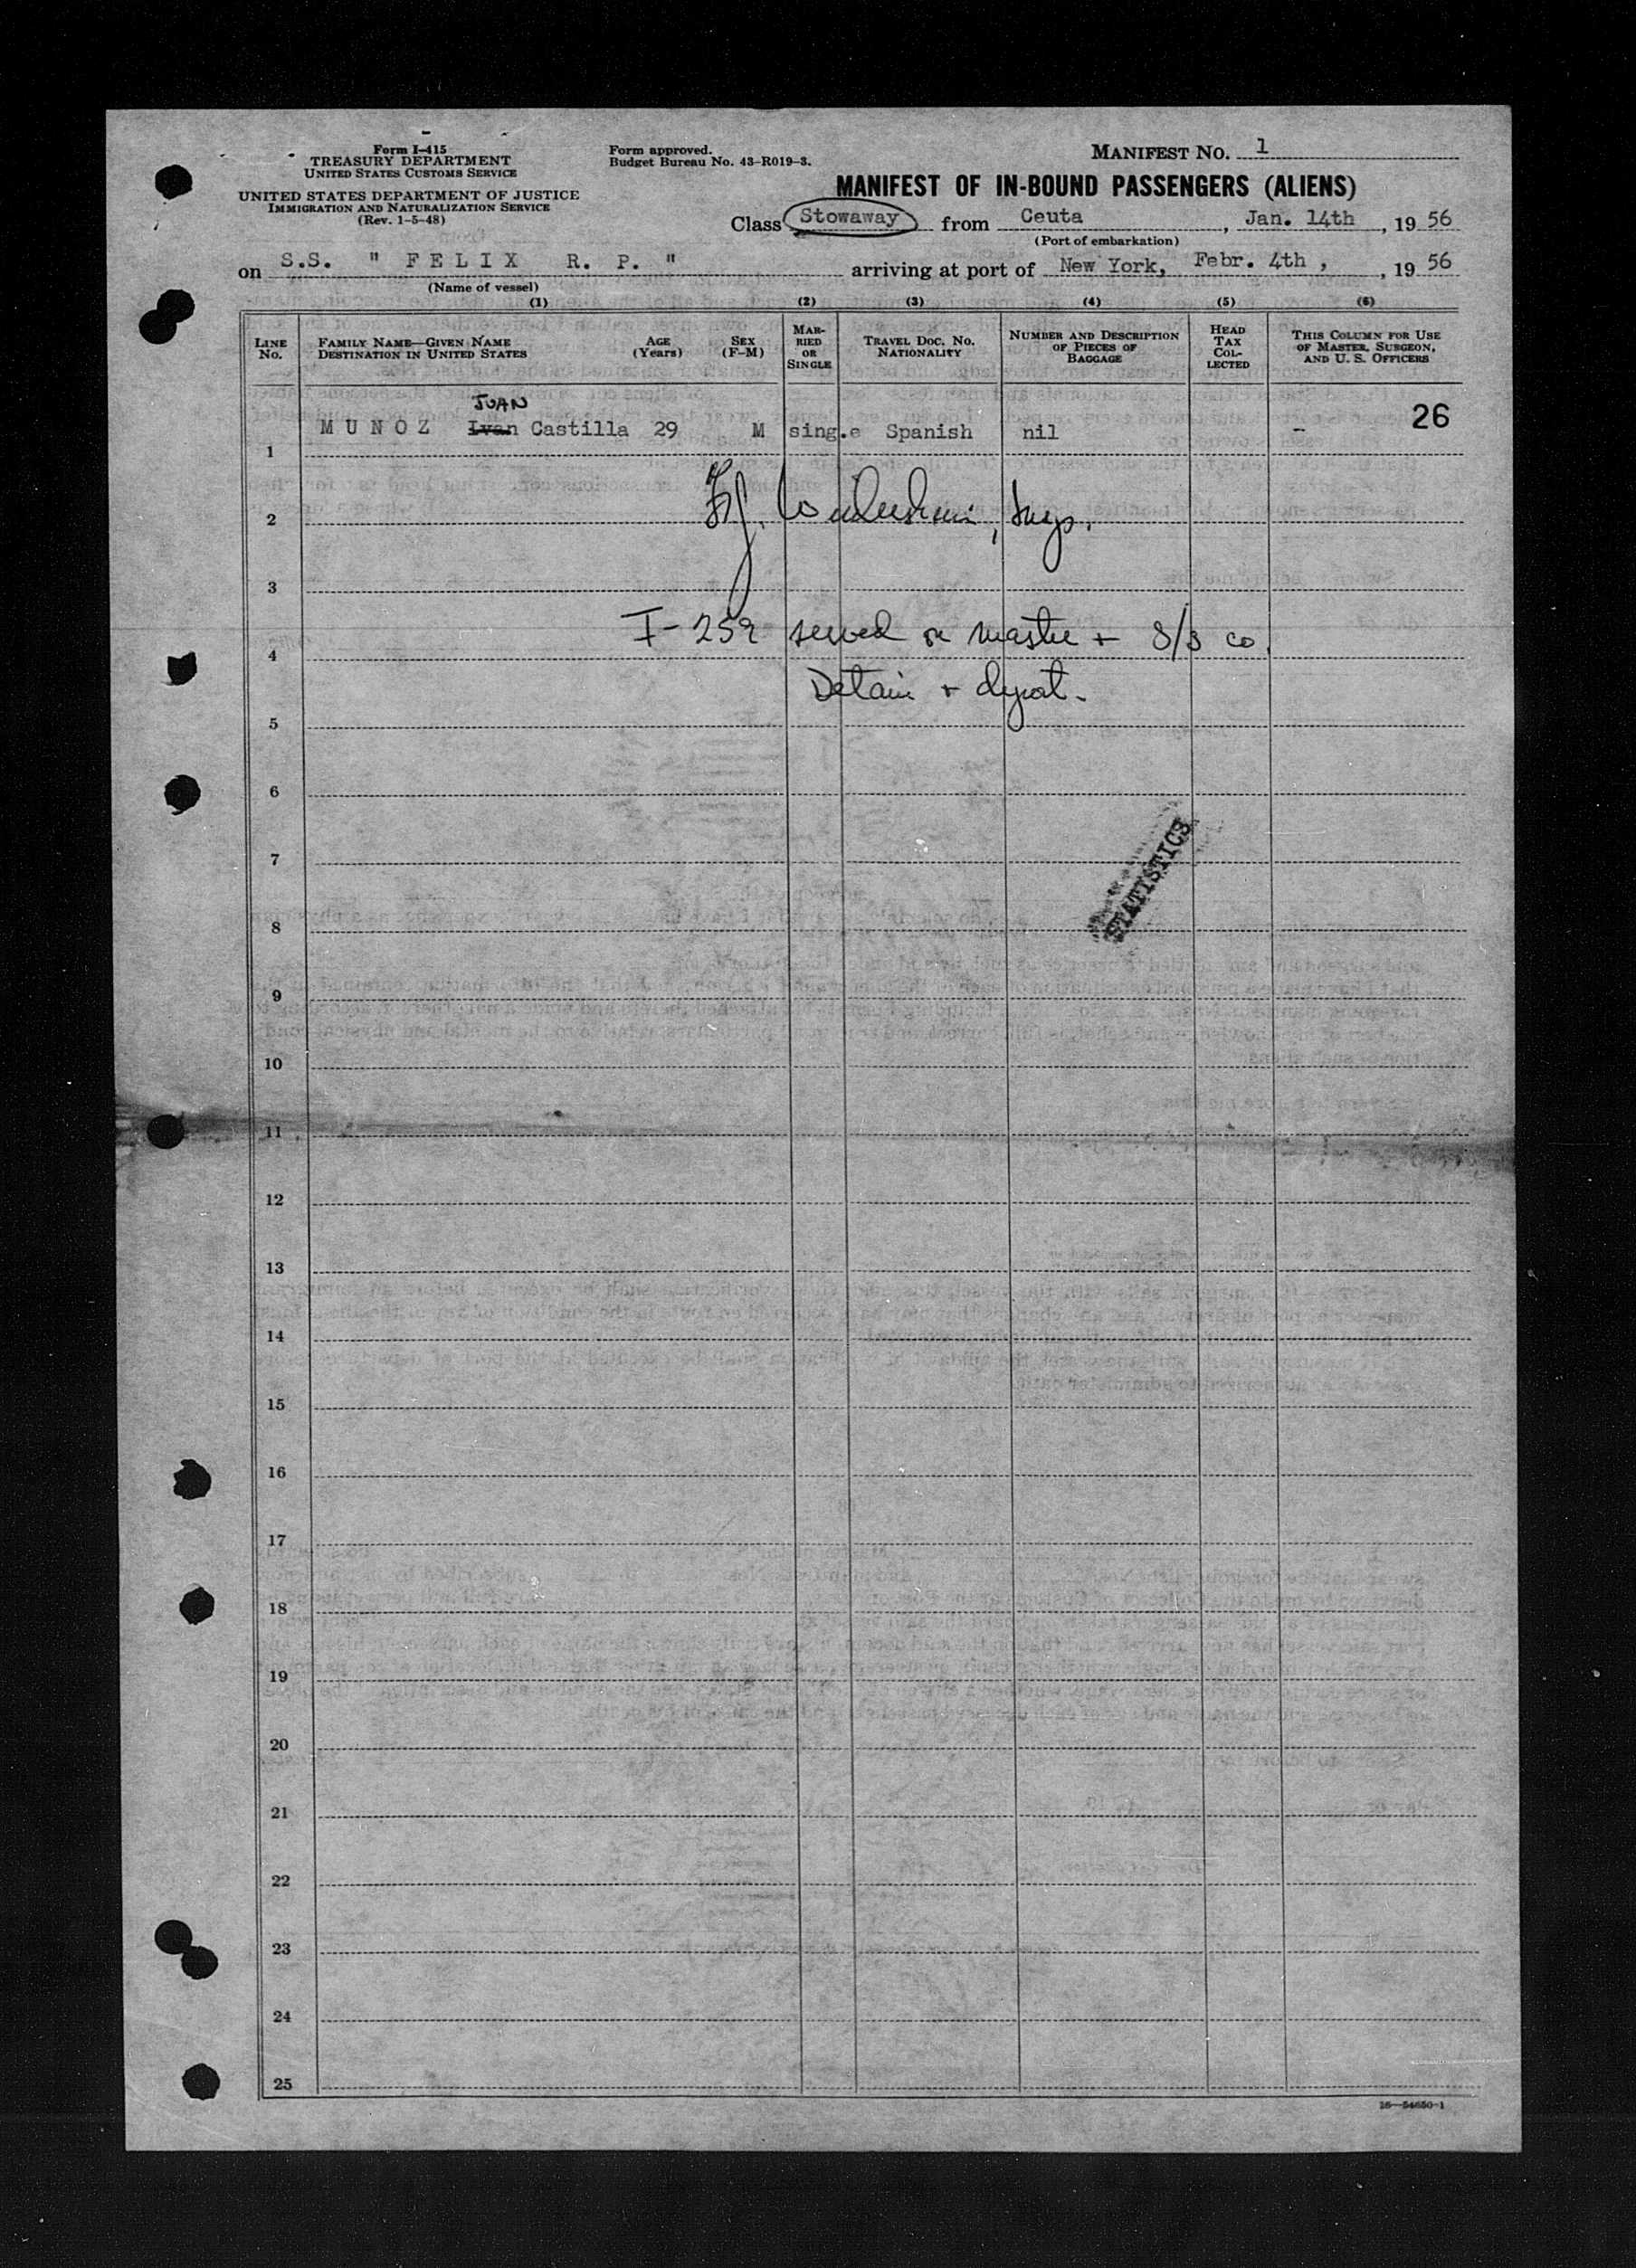 Form I-415
TREASURY DEPARTMENT
UNITED STATES CUSTOMS SERVICE
UNITED STATES DEPARTMENT OF JUSTICE
IMMIGRATION AND NATURALIZATION SERVICE
(Rev. 1-5-48)
Form approved.
Budget Bureau No. 43-R019-3.
MANIFEST NO. 1
MANIFEST OF IN-BOUND PASSENGERS (ALIENS)
Class Stowaway from Ceuta, Jan. 14th, 19 56
(Port of embarkation)
on S.S. " FELIX R. P. " arriving at port of New York, Febr. 4th, , 19 56
(Name of vessel)
(1) (2) (3) (4) (5) (6)
LINE NO.
FAMILY NAME—GIVEN NAME
DESTINATION IN UNITED STATES
AGE (Years)
SEX (F-M)
MARRIED OR SINGLE
TRAVEL DOC. NO.
NATIONALITY
NUMBER AND DESCRIPTION OF PIECES OF BAGGAGE
HEAD TAX COLLECTED
THIS COLUMN FOR USE OF MASTER, SURGEON, AND U. S. OFFICERS
JUAN
MUNOZ Ivan Castilla 29 M sing.e Spanish nil – 26
1
Insp.
2
3
I-259 served on master + S/S co.
4
Detain + deport.
5
6
STATISTICS
7
8
9
10
11
12
13
14
15
16
17
18
19
20
21
22
23
24
25
16—54650-1